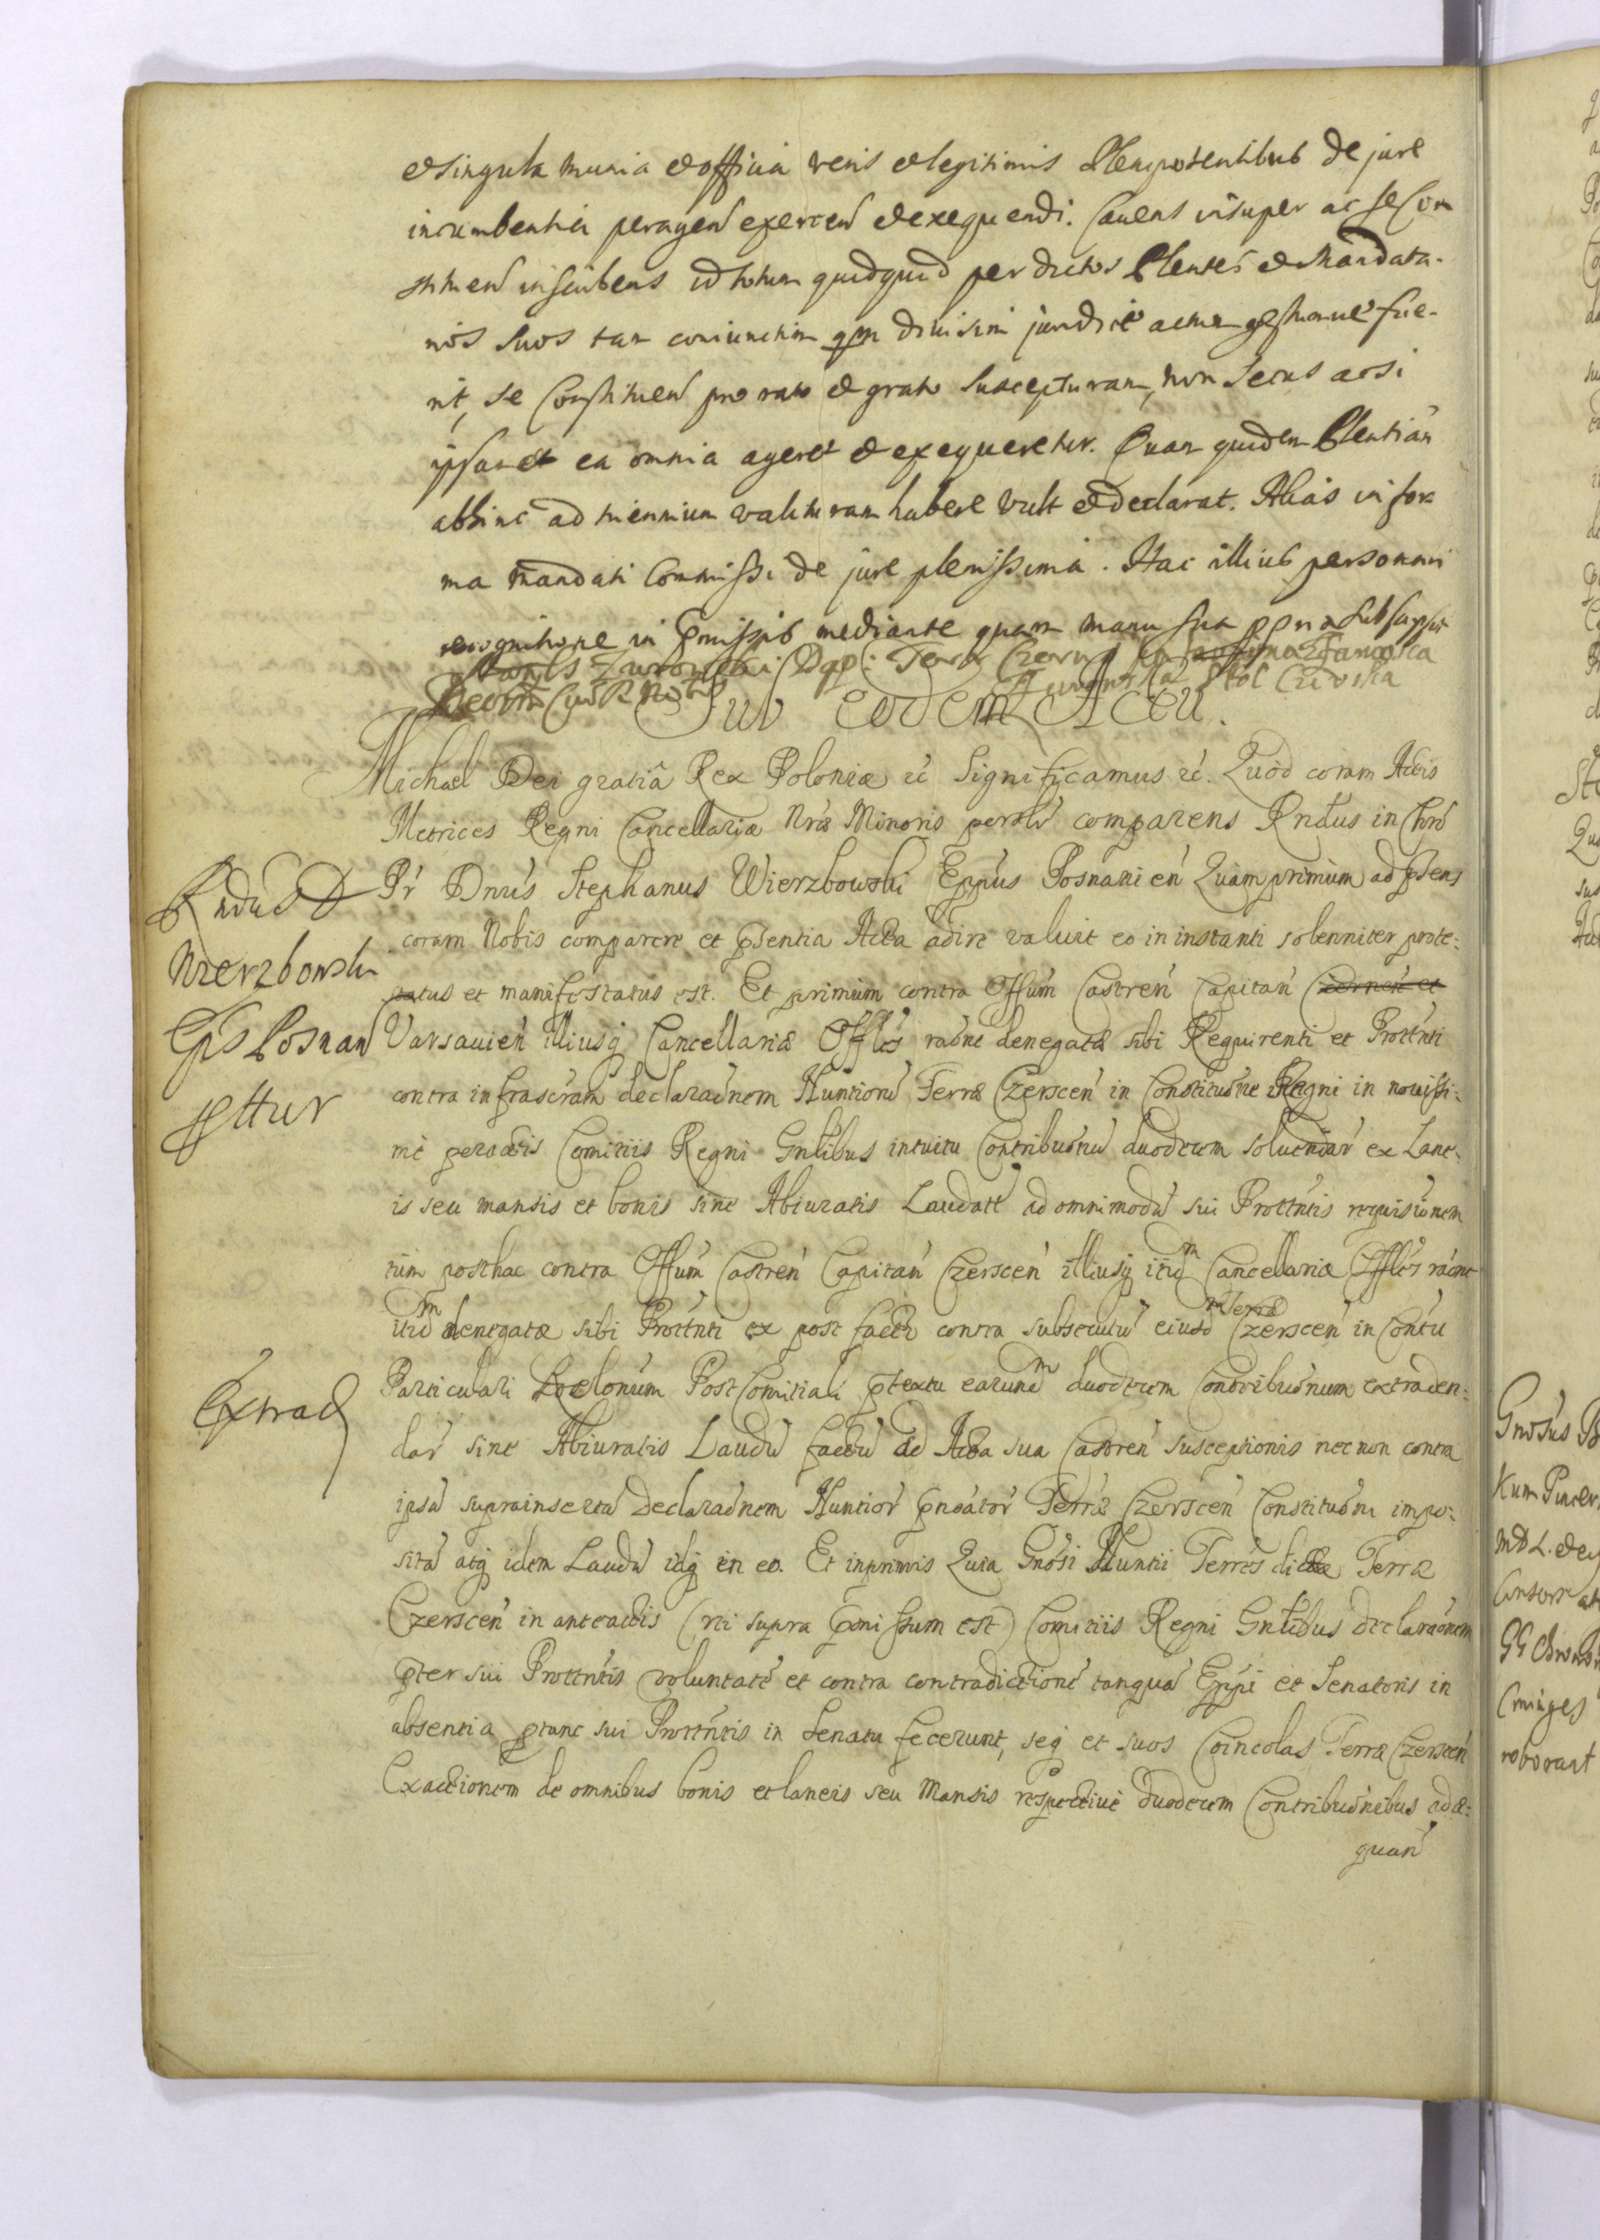 et singula munia et officia veris et legitimis Plenipotentibus de jure
incumbentia peragen exercen et exequendi. Cauens insuper ac se Con
stituen inscribens id totum quidquid per dictos Plentes et Mandata-
rios suos tam coniunctim qm diuisim juridice actum gestumue fue-
rit, se Constituen pro rato et grato suscepturam, non secus ac si
ipsamet ea omnia ageret et exequeretur. Quam quidem Plentiam
abhinc ad triennium valituram habere vult et declarat. Alias in for
ma Mandati Commissi de jure plenissima. Hac illius personali
recognitione in pmissis mediante quam manu sua ppria subscripsit
Sub eodem Actu.
Michael Dei gratia Rex Poloniæ etc Significamus etc. Quod coram Actis
Metrices Regni Cancellariæ Nræ Minoris persolr comparens Rndus in Chro
Pr Dnus Stephanus Wierzbowski Eppus Posnanien Quamprimum ad psens
coram Nobis comparere et psentia Acta adire valuit eo in instanti solenniter prote-
status et manifestatus est. Et primum contra Offum Castren Capitan Czernen et
Varsauien illiusq Cancellariæ Offles raone denegatæ sibi Requirenti et Prottnti
contra infrascram declaraonem Nuntiorum Terræ Czerscen in Constituone Regni in nouissi-
me peractis Comitiis Regni Gnlibus intuitu Contribuonu duodecem soluendar ex Lane-
is seu mansis et bonis sine Abiuratis Laudatt ad omnimodam sui Prottntis requisionem
tum posthac contra Offum Castren Capitan Czerscen illiusq itidm Cancellariæ Offles raone
itidm denegatæ sibi Prottnti ex post facto contra subsecutu eiusdm Terræ Czerscen in Contu
Particulari Loelonum PostComitiali ptextu earundm duodecem Contribuonum extraden-
dar sine Abiuratis Laudu factu ad Acta sua Castren susceptionis necnon contra
ipsa suprainserta Declaraonem Nuntior pnoator Terræ Czerscen Constituoni impo-
sita atq idem Laudu idq in eo. Et inprimis Quia Gnosi Nuntii Terres dictæ Terræ
Czerscen in anteactis (uti supra pmissum est) Comitiis Regni Gnlibus declaraonem
pter sui Prottntis voluntate et contra contradictione tanqua Eppi et Senatoris in
absentia ptunc sui Prottntis in Senatu fecerunt, seq et suos Coincolas Terræ Czerscen
Exactionem de omnibus bonis et laneis seu Mansis respective duodecem Contribuonibus adæ-
quan
Rndus D
Wierzbowski
Eps Posnan
pttur
Extrad